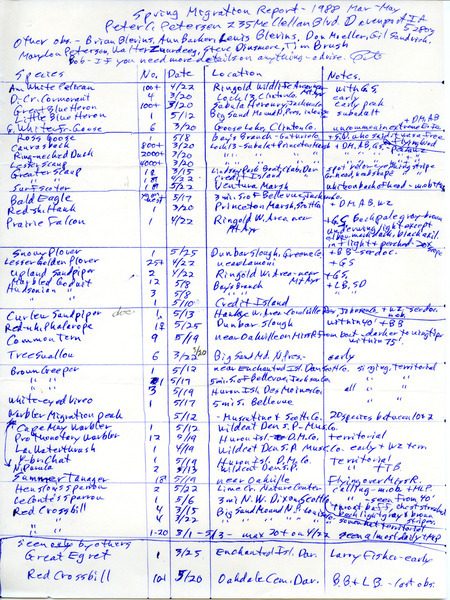 Spring Migration Report - 1988 Mar-May
Peter C. Petersen 235 McClellan Blvd Davenport IA 52803
Other obs - Brian Blevins, Ann Barker, Lewis Blevins, Don Moeller, Gil Sandvick,
Marylou Petersen, Walter Zuurdeeg, Steve Dinsmore, Tim Brush
Bob - If you need more details on anything - advise. Pete
Species No. Date Location Notes
Am. White Pelican 100+ 4/22 Ringold Wildlife Area with GS
D-Cr. Cormorant 4 3/20 Lock 13, Clinton Co. early
Great Blue Heron 100+ 3/20 Sabula Heronry, Jackson Co early peak
Little Blue Heron 1 5/12 Big Sand Mound Pres. subadult
G. White-Fr. Goose 6 3/20 Goose Lake, Clinton Co. + DM, AB
Ross Goose 1 5/8 Bay's Branch - Guthrie Co
Canvasback 800+ 3/20 Lock 13 - Sabula + Princeton Marsh + DM, AB
Ring-necked Duck 2000+ 3/20
Lesser Scaup 4000+ 3/20
Greater Scaup 18 3/15 Lindsay Park Boat Club, Dav
4/22 Credit Island
Surf Scoter 1 5/22 Ventura Marsh white on back of head
Bald Eagle 5/17 3 mi. S of Bellevue, Jackson Co
Red-sh. Hawk 1 3/20 Princeton Marsh, Scott Co + DM, AB, WZ
Prairie Falcon 1 4/22 Ringold W. Area near Mt Ayr + GS Back pale gray-brown
underwing light except
Snowy Plover 1 5/25 Dunbar Slough, Greene Co. + BB - ser doc.
Lesser Golden Plover 25+ 4/22 near Lamoni + GS
Upland Sandpiper 2 4/22 Ringold W. Area - near Mt Ayr + GS
Marbled Godwit 12 5/8 Bay's Branch + LB, SD
Hudsonian " 3 5/8 "
" " 1 5/10 Credit Island
Curlew Sandpiper doc. 1 5/13
Red-n. Phalarope 18 5/25 Dunbar Slough within 40' + BB
Common Tern 9 5/19 near Oakville on Miss R.
within 75'.
Tree Swallow 6 3/20 Big Sand Md. N. Pres. early
Brown Creeper 1 5/12 near Enchanted Isl. Dav Scott Co. singing, territorial
" " 1 5/17 5 mi. S of Bellevue, Jackson Co " "
" " 3 5/19 Huron Isl. Des Moines Co. all "
White-eyed Vireo 1 5/17 5 mi S. Bellevue
Warbler Migration peak 5/12 - Muscatine + Scott Co. 20 species between 10 + 2
Cape May Warbler 1 5/12 Wildcat Den S.P. Musc. Co
Prothonotary Warbler 12 5/19 Huron Isl. D.M. Co. territorial
La. Waterthrush 1 5/9 Wildcat Den S.P. Musc Co. early + WZ
Y-br. Chat 1 5/19 Huron Isl. D.M. Co. Territorial
N. Parula 2 5/13 Wildcat Den S.P. " + TB
Summer Tanager 18 5/19 near Oakville Flying over Miss R.
Henslow's Sparrow 2 5/21 Lime Cr. Nature Center calling - mob + M&P
LeConte's Sparrow 1 5/6 3 mi N.W. Dixon, Scott Co - seen from 40'
Red Crossbill 4 3/15 Big Sand Mound N.P. Louisa
" " 4 3/22 "
" " 1-20 3/1 - 5/13 - max 20+ on 4/22 seen almost daily + M&P
Seen only by others
Great Egret 1 3/25 Enchanted Isl. Dav. Larry Fisher - early
Red Crossbill 10+ 5/20 Oakdale Cem. Dav. B.B + L.B. - last obs.